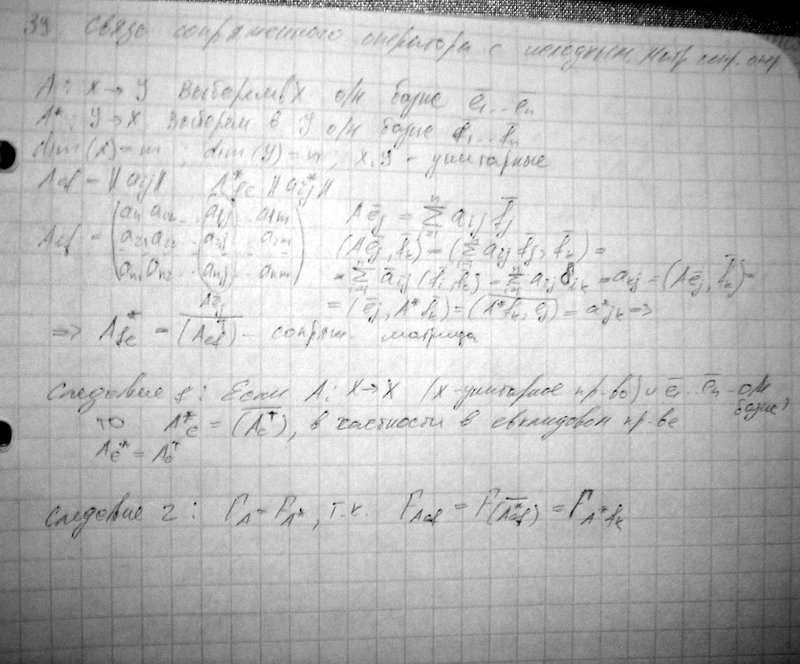 39 Связь сопряженного оператора с исходным. Матр. сопр. опер.
A: X → Y Выберем в X о/н базис e̅₁...e̅ₙ
A*: Y → X Выберем в Y о/н базис f̅₁...f̅ₙ
dim(X) = m; dim(Y) = n; X, Y - унитарные
A_ef = ||a_ij|| A*_fe ||a*_ij||
A_ef = (a₁₁ a₁₂ ... a₁j ... a₁m
a₂₁ a₂₂ ... a₂j ... a₂m
aₙ₁ aₙ₂ ... aₙj ... aₙm)
Ae̅j
Ae̅j = Σ a_ij f̅j
(Ae̅j, f̅k) = (Σ a_ij f̅j, f̅k) =
= Σ a_ij (f_i, f_k) = Σ a_ij δ_ik = a_kj = (Ae̅j, f̅k) =
= (e̅j, A* f̅k) = \overline{(A* f̅k, ej)} = a*_jk =>
=> A*_fe = \overline{(A_ef^T)} - сопряж. матрица
Следствие 1: Если A: X → X (X-унитарное пр-во) и e̅₁...e̅ₙ - о/н базис,
то A*_e = \overline{(A_e^T)}, в частности в евклидовом пр-ве
A_e* = A_e^T
Следствие 2: Γ_A = Γ_A*, т.к. Γ_Aef = Γ_(A̅*ef) = Γ_A*fe